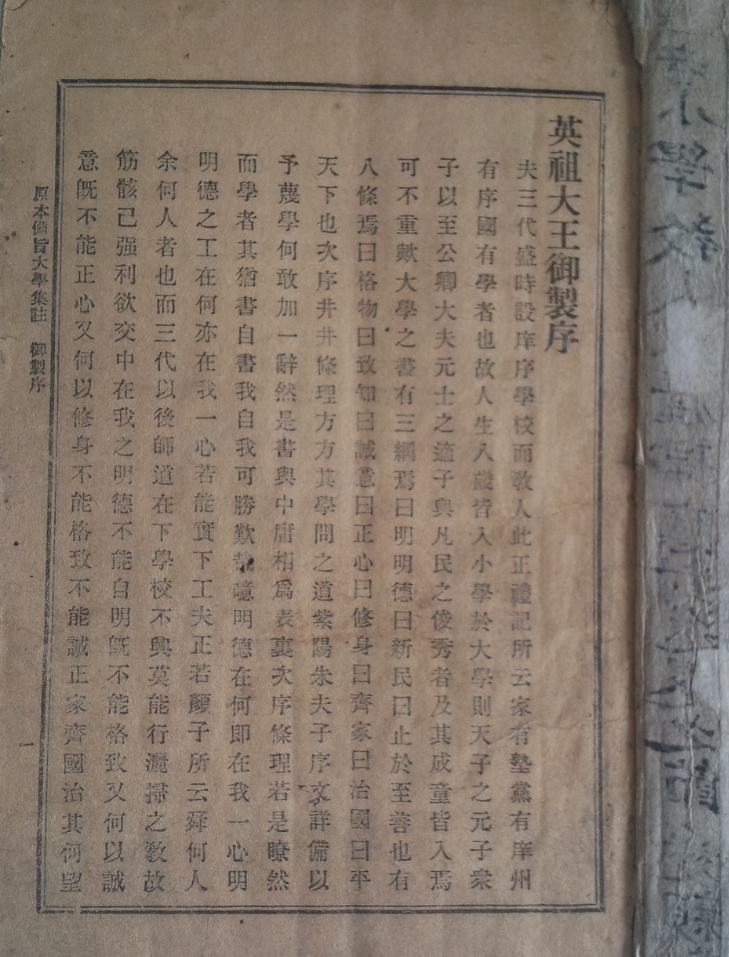 英祖大王御製序
夫三代盛時設庠序學校而敎人此正禮記所云家有塾黨有庠州
有序國有學者也故人生八歲皆入小學於大學則天子之元子衆
子以至公卿大夫元士之適子與凡民之俊秀者及其成童皆入焉
可不重歟大學之書有三綱焉曰明明德曰新民曰止於至善也有
八條焉曰格物曰致知曰誠意曰正心曰修身曰齊家曰治國曰平
天下也次序井井條理方方其學問之道紫陽朱夫子序文詳備以
予蔑學何敢加一辭然是書與中庸相爲表裏次序條理若是瞭然
而學者其猶書自書我自我可勝歎哉噫明德在何卽在我一心明
明德之工在何亦在我一心若能實下工夫正若顔子所云舜何人
余何人者也而三代以後師道在下學校不興莫能行灑掃之敎故
筋骸已强利欲交中在我之明德不能自明旣不能格致又何以誠
意旣不能正心又何以修身不能格致不能誠正家齊國治其何望
原本備旨大學集註 御製序
一
小學